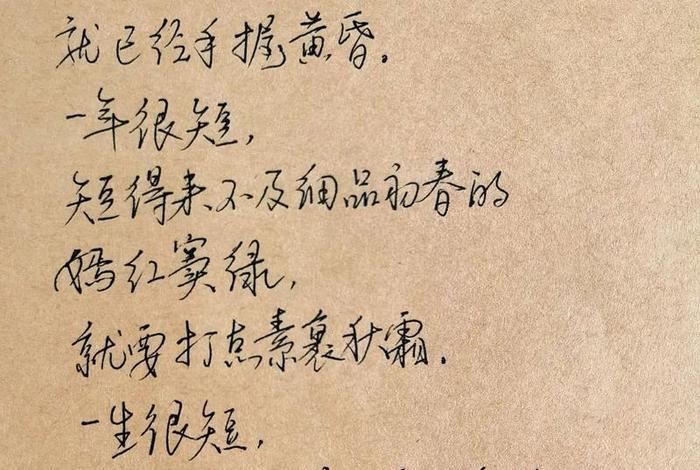 就已经手握黄昏。
一年很短，
短得来不及细品初春的
嫣红窦绿，
就要打点素裹秋霜。
一生很短，